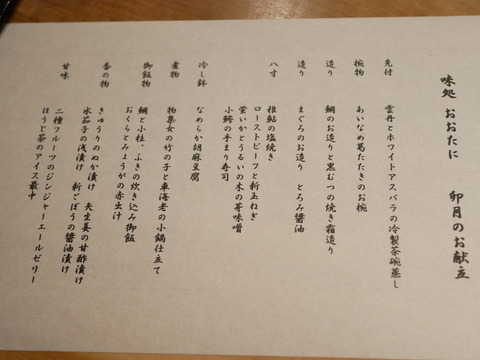 味処 おおたに 卯月のお献立
先付 雲丹とホワイトアスパラの冷製茶碗蒸し
椀物 あいなめ葛たたきのお椀
造り 鯛のお造りと黒むつの焼き霜造り
造り まぐろのお造り とろみ醤油
八寸 稚鮎の塩焼き
ローストビーフと新玉ねぎ
蛍いかとうるいの木の芽味噌
小鯵の手まり寿司
冷し鉢 なめらか胡麻豆腐
煮物 物集女の竹の子と車海老の小鍋仕立て
御飯物 鯛と小柱、ふきの炊き込み御飯
おくらとみょうがの赤出汁
香の物 きゅうりのぬか漬け 矢生姜の甘酢漬け
水茄子の浅漬け 新ごぼうの醤油漬け
甘味 二種フルーツのジンジャーエールゼリー
ほうじ茶のアイス最中